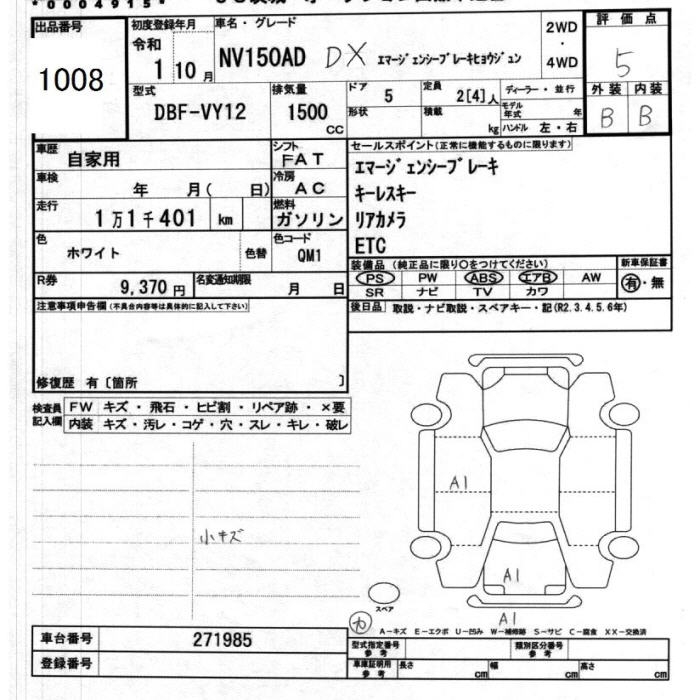 *0004915*
出品番号
1008
初度登録年月
令和
1 10 月
車名・グレード
NV150AD DX エマージェンシーブレーキヒョウジュン
2WD
・
4WD
評価点
5
外装 内装
B B
型式
DBF-VY12
排気量
1500
CC
ドア
5
定員
2[4]人
ディーラー・並行
形状
積載
kg
モデル年式 年
ハンドル 左・右
車歴
自家用
シフト
FAT
車検
年 月( 日)
冷房
AC
走行
1万1千401 km
燃料
ガソリン
色
ホワイト
色替
色コード
QM1
R券
9,370円
名変通知期限
月 日
セールスポイント(正常に機能するものに限ります)
エマージェンシーブレーキ
キーレスキー
リアカメラ
ETC
装備品(純正品に限り○をつけてください)
PS PW ABS エアB AW
SR ナビ TV カワ
新車保証書
有・無
後日品 取説・ナビ取説・スペアキー・記(R2.3.4.5.6年)
注意事項申告欄(不具合内容等は具体的に記入して下さい)
修復歴 有〔箇所 〕
検査員
記入欄
FW キズ・飛石・ヒビ割・リペア跡・×要
内装 キズ・汚レ・コゲ・穴・スレ・キレ・破レ
小キズ
A1
A1
A1
スペア
カ
A-キズ E-エクボ U-凹み W-補修跡 S-サビ C-腐食 XX-交換済
車台番号 271985
登録番号
型式指定番号
参考
類別区分番号
参考
車庫証明用
参考
長さ cm 幅 cm 高さ cm